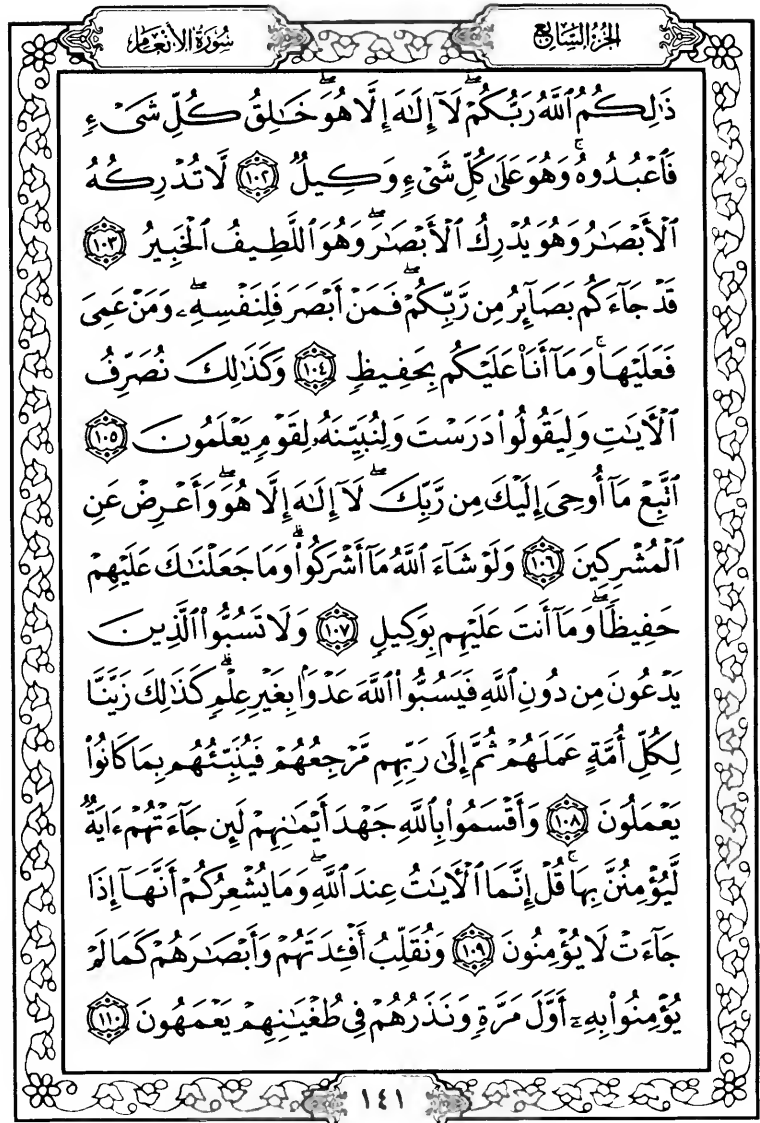 سُورَةُ الأَنْعَامِ
الجُزْءُ السَّابِعُ
ذَٰلِكُمُ ٱللَّهُ رَبُّكُمْ ۖ لَآ إِلَٰهَ إِلَّا هُوَ ۖ خَٰلِقُ كُلِّ شَىْءٍ
فَٱعْبُدُوهُ ۚ وَهُوَ عَلَىٰ كُلِّ شَىْءٍ وَكِيلٌ ١٠٢ لَّا تُدْرِكُهُ
ٱلْأَبْصَٰرُ وَهُوَ يُدْرِكُ ٱلْأَبْصَٰرَ ۖ وَهُوَ ٱللَّطِيفُ ٱلْخَبِيرُ ١٠٣
قَدْ جَآءَكُم بَصَآئِرُ مِن رَّبِّكُمْ ۖ فَمَنْ أَبْصَرَ فَلِنَفْسِهِۦ ۖ وَمَنْ عَمِىَ
فَعَلَيْهَا ۚ وَمَآ أَنَا۠ عَلَيْكُم بِحَفِيظٍ ١٠٤ وَكَذَٰلِكَ نُصَرِّفُ
ٱلْأَيَٰتِ وَلِيَقُولُوا۟ دَرَسْتَ وَلِنُبَيِّنَهُۥ لِقَوْمٍ يَعْلَمُونَ ١٠٥
ٱتَّبِعْ مَآ أُوحِىَ إِلَيْكَ مِن رَّبِّكَ ۖ لَآ إِلَٰهَ إِلَّا هُوَ ۖ وَأَعْرِضْ عَنِ
ٱلْمُشْرِكِينَ ١٠٦ وَلَوْ شَآءَ ٱللَّهُ مَآ أَشْرَكُوا۟ ۗ وَمَا جَعَلْنَٰكَ عَلَيْهِمْ
حَفِيظًا ۖ وَمَآ أَنتَ عَلَيْهِم بِوَكِيلٍ ١٠٧ وَلَا تَسُبُّوا۟ ٱلَّذِينَ
يَدْعُونَ مِن دُونِ ٱللَّهِ فَيَسُبُّوا۟ ٱللَّهَ عَدْوًۢا بِغَيْرِ عِلْمٍ ۗ كَذَٰلِكَ زَيَّنَّا
لِكُلِّ أُمَّةٍ عَمَلَهُمْ ثُمَّ إِلَىٰ رَبِّهِم مَّرْجِعُهُمْ فَيُنَبِّئُهُم بِمَا كَانُوا۟
يَعْمَلُونَ ١٠٨ وَأَقْسَمُوا۟ بِٱللَّهِ جَهْدَ أَيْمَٰنِهِمْ لَئِن جَآءَتْهُمْ ءَايَةٌ
لَّيُؤْمِنُنَّ بِهَا ۚ قُلْ إِنَّمَا ٱلْأَيَٰتُ عِندَ ٱللَّهِ ۖ وَمَا يُشْعِرُكُمْ أَنَّهَآ إِذَا
جَآءَتْ لَا يُؤْمِنُونَ ١٠٩ وَنُقَلِّبُ أَفْـِٔدَتَهُمْ وَأَبْصَٰرَهُمْ كَمَا لَمْ
يُؤْمِنُوا۟ بِهِۦٓ أَوَّلَ مَرَّةٍ وَنَذَرُهُمْ فِى طُغْيَٰنِهِمْ يَعْمَهُونَ ١١٠
١٤١